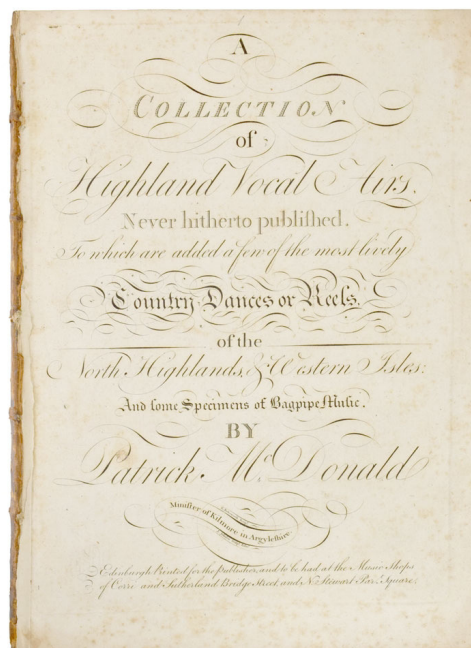 A
COLLECTION
of
Highland Vocal Airs.
Never hitherto publiſhed.
To which are added a few of the most lively
Country Dances or Reels.
of the
North Highlands, & Western Isles:
And ſome Specimens of Bagpipe Muſic.
BY
Patrick Mc. Donald
Minister of Kilmore in Argyleſhire.
Edinburgh Printed for the publisher, and to be had at the Music Shops
of Corri and Sutherland Bridge Street, and N. Stewart Par. Square.